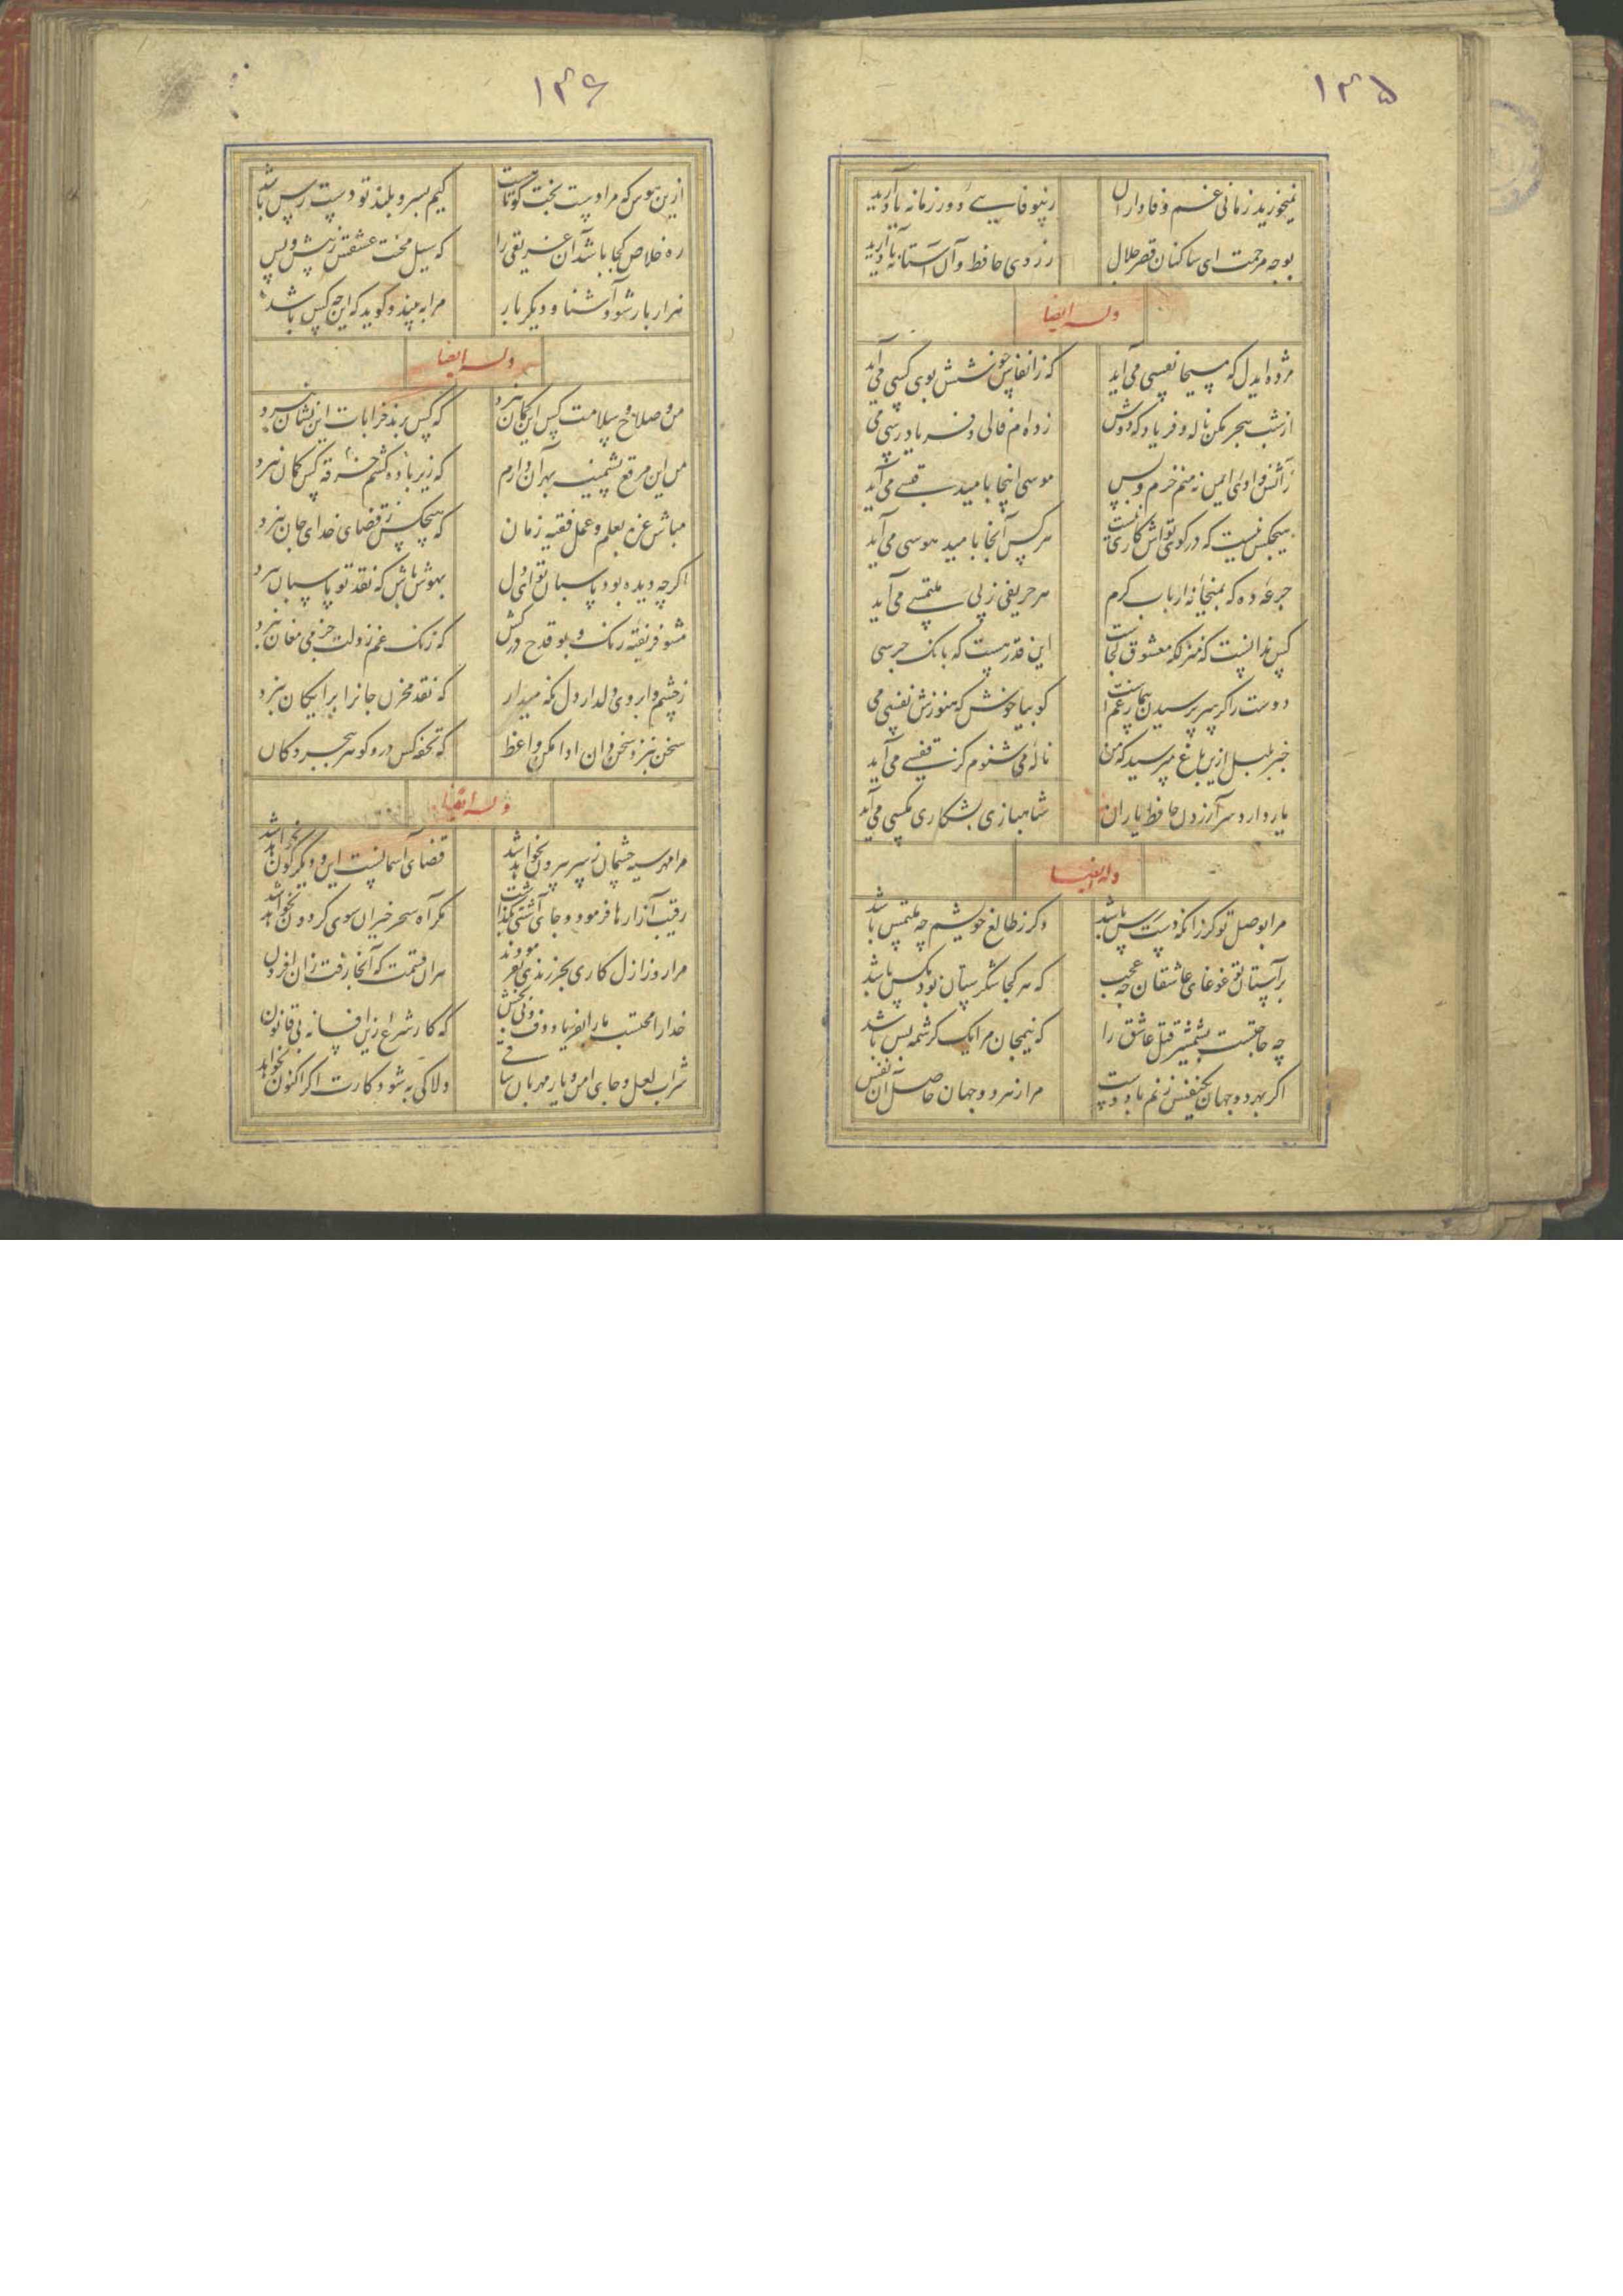 ۱۳۵
نمیخورید زمانی غم وفاداران ز بیوفایی دور زمانه یاد آرید
بوجه مرحمت ای ساکنان قصر جلال ز روی حافظ و آن آستانه یاد آرید
وله ایضا
مژده ایدل که مسیحا نفسی می آید که ز انفاس خوشش بوی کسی می آید
از شب هجر مکن ناله و فریاد که دوش زده ام فالی و فریاد رسی می
ز آتش وادی ایمن نه منم خرم و بس موسی اینجا بامید قبسی می آید
هیچکس نیست که در کوی تو اش کاری نیست هر کس آنجا بامید هوسی می آید
جرعه ده که بمیخانه ارباب کرم هر حریفی ز پی ملتمسی می آید
کس ندانست که منزلگه معشوق کجاست این قدر هست که بانک جرسی
دوست را گر سر پرسیدن بیمار غمست گو بیا خوش که هنوزش نفسی می
خبر بلبل ازین باغ مپرسید که من ناله می شنوم کز قفسی می آید
یار دارد سر آزردن حافظ یاران شاهبازی بشکاری مکسی می آید
وله ایضا
مرا بوصل تو کر زانکه دست رس باشد دکر ز طالع خویشم چه ملتمس باشد
بر آستان تو غوغای عاشقان چه عجب که هر کجا شکرستان بود مکس باشد
چه حاجتست بشمشیر قتل عاشق را که نیمجان مرا یک کرشمه بس باشد
اکر بهر دو جهان یکنفس زنم با دوست مرا ز هر دو جهان حاصل آن نفس
۱۳۶
ازین هوس که مرا دست بخت کوتاهست کیم بسرو بلند تو دست رس باشد
ره خلاص کجا باشد آن غریقی را که سیل محنت عشقش ز پیش و پس
هزار بار شود آشنا و دیکر بار مرا به بیند و کوید که این چه کس باشد
وله ایضا
من و صلاح و سلامت کس این کمان نبرد که کس برند خرابات این نشان نبرد
من این مرقع پشمینه بهر آن دارم که زیر باده کشم خرقه کس کمان نبرد
مباش غره بعلم و عمل فقیه زمان که هیچکس ز قضای خدای جان نبرد
اکر چه دیده بود پاسبان تو ای دل بهوش باش که نقد تو پاسبان نبرد
مشو فریفته رنک و بو قدح در کش که زنک غم ز دلت جز می مغان نبرد
ز چشم و ابروی دلدار دل نکه میدار که نقد مخزن جانرا برایکان نبرد
سخن بنزد سخن دان ادا مکن واعظ که تحفه کس در و کوهر ببحر و کان
وله ایضا
مرا مهر سیه چشمان ز سر بیرون نخواهد شد قضای آسمانست این و دیکرکون نخواهد شد
رقیب آزارها فرمود و جای آشتی نکذاشت مکر آه سحرخیزان سوی کردون نخواهد شد
مرا روز ازل کاری بجز رندی نفرمودند هر آن قسمت که آنجا رفت زان افزون
خدارا محتسب مارا بفریاد دف و نی بخش که کار شرع ازین افسانه بی قانون
شراب لعل و جای امن و یار مهربان ساقی دلا کی به شود کارت اکر اکنون نخواهد